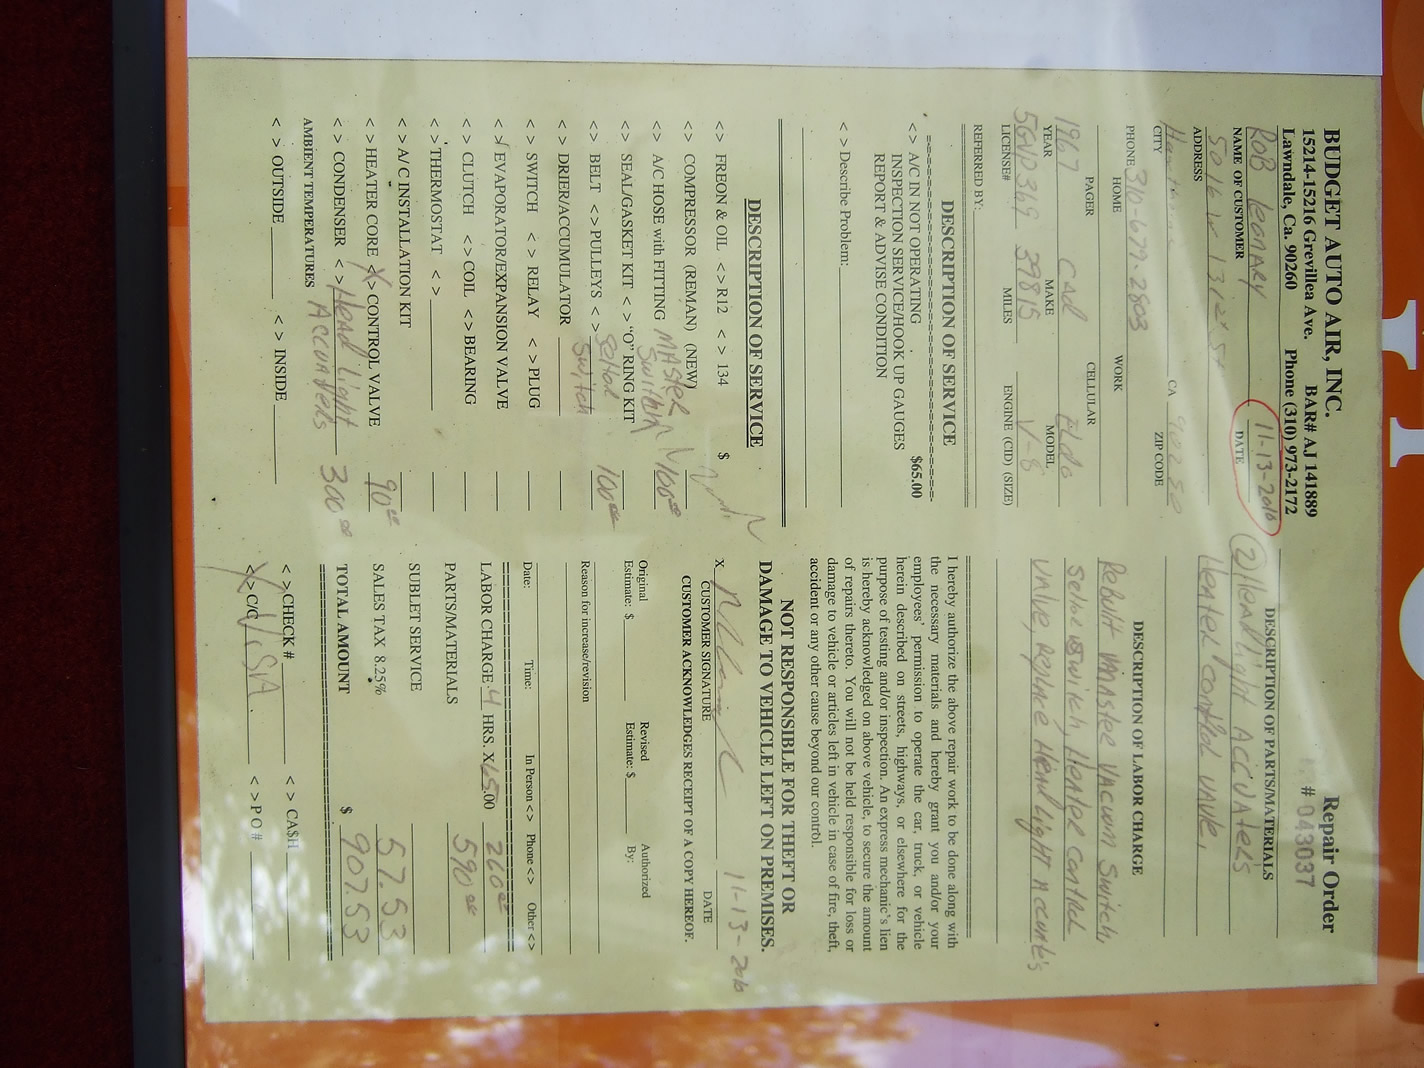 BUDGET AUTO AIR, INC.
15214-15216 Grevillea Ave. BAR# AJ 141889
Lawndale, Ca. 90260 Phone (310) 973-2172
Repair Order
# 043037
ROB 11-13-2010
NAME OF CUSTOMER DATE
5016 W 131st St
ADDRESS
CA 90250
CITY ZIP CODE
PHONE 310-679-2803
HOME WORK
PAGER CELLULAR
1967 Cad Eldo
YEAR MAKE MODEL
5GVD369 39815 V-8
LICENSE# MILES ENGINE (CID) (SIZE)
REFERRED BY:
DESCRIPTION OF SERVICE
< > A/C IN NOT OPERATING $65.00
INSPECTION SERVICE/HOOK UP GAUGES
REPORT & ADVISE CONDITION
< > Describe Problem:
DESCRIPTION OF SERVICE
< > FREON & OIL < > R12 < > 134 $
< > COMPRESSOR (REMAN) (NEW)
< > A/C HOSE with FITTING MASTER Switch 100.00
< > SEAL/GASKET KIT < > "O" RING KIT
< > BELT < > PULLEYS < > Switch 100.00
< > DRIER/ACCUMULATOR
< > SWITCH < > RELAY < > PLUG
< > EVAPORATOR/EXPANSION VALVE
< > CLUTCH < > COIL < > BEARING
< > THERMOSTAT < >
< > A/C INSTALLATION KIT
< > HEATER CORE <X> CONTROL VALVE 90.00
< > CONDENSER < > Head Light Accuaters 300.00
AMBIENT TEMPERATURES
< > OUTSIDE < > INSIDE
DESCRIPTION OF PARTS/MATERIALS
(2) Headlight Accuater's
Heater control valve,
DESCRIPTION OF LABOR CHARGE
Rebuilt Master vacuum Switch,
switch, Heater control
valve, Replace Head light
I hereby authorize the above repair work to be done along with
the necessary materials and hereby grant you and/or your
employees' permission to operate the car, truck, or vehicle
herein described on streets, highways, or elsewhere for the
purpose of testing and/or inspection. An express mechanic's lien
is hereby acknowledged on above vehicle, to secure the amount
of repairs thereto. You will not be held responsible for loss or
damage to vehicle or articles left in vehicle in case of fire, theft,
accident or any other cause beyond our control.
NOT RESPONSIBLE FOR THEFT OR
DAMAGE TO VEHICLE LEFT ON PREMISES.
X 11-13-2010
CUSTOMER SIGNATURE DATE
CUSTOMER ACKNOWLEDGES RECEIPT OF A COPY HEREOF.
Original Revised Authorized
Estimate: $ Estimate: $ By:
Reason for increase/revision
Date: Time: In Person < > Phone < > Other < >
LABOR CHARGE: 4 HRS. X 65.00 260.00
PARTS/MATERIALS 590.00
SUBLET SERVICE
SALES TAX 8.25% 57.53
TOTAL AMOUNT $ 907.53
< > CHECK # < > CASH
<X> C/C VISA. < > P O #